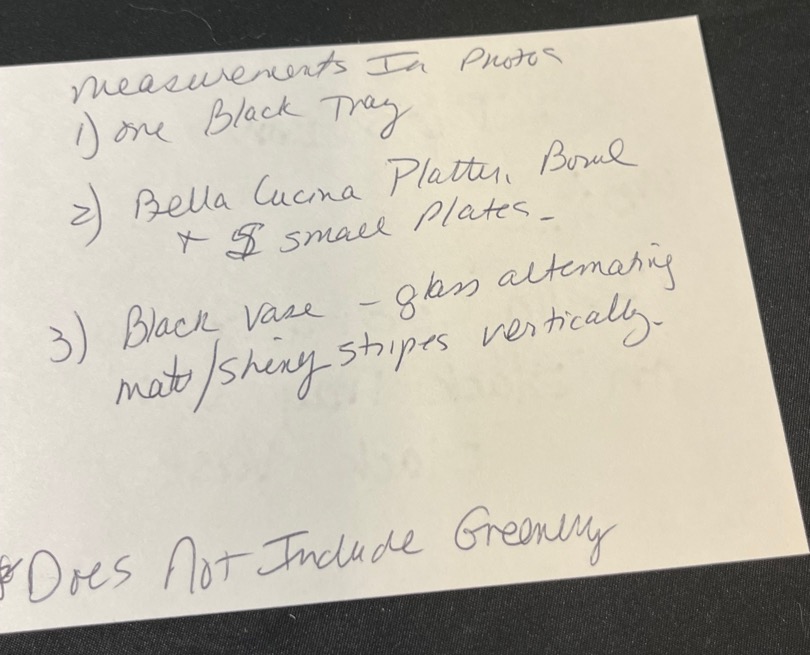 Measurements In Photos
1) one Black Tray
2) Bella Cucina Platter, Bowl
+ small Plates -
3) Black Vase - glass alternating
matt/shiny stripes vertically.
Does Not Include Greenery